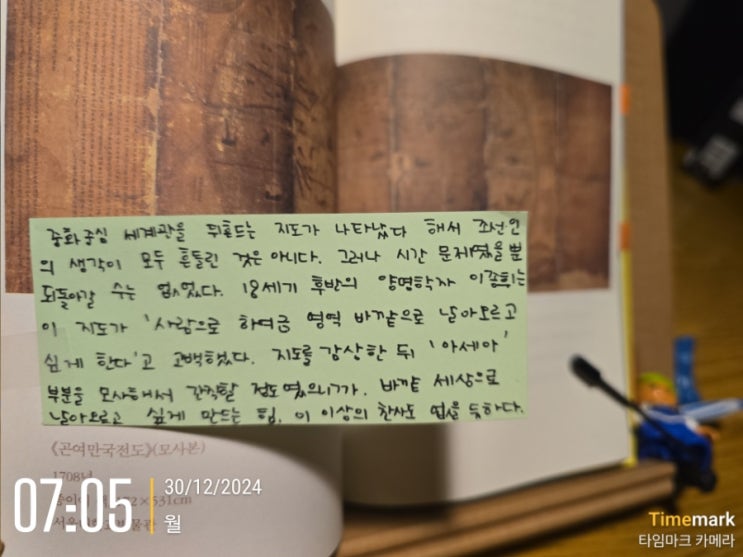 중화중심 세계관을 뒤흔드는 지도가 나타났다 해서 조선인
의 생각이 모두 흔들린 것은 아니다. 그러나 시간 문제였을 뿐
되돌아갈 수는 없었다. 18세기 후반의 양명학자 이종휘는
이 지도가 '사람으로 하여금 영역 바깥으로 날아오르고
싶게 한다'고 고백했다. 지도를 감상한 뒤 '아세아'
부분을 모사해서 간직할 정도였으니까. 바깥 세상으로
날아오르고 싶게 만드는 힘. 이 이상의 찬사도 없을 듯하다.
《곤여만국전도》(모사본)
1708년
531cm
07:05
30/12/2024
월
Timemark
타임마크 카메라